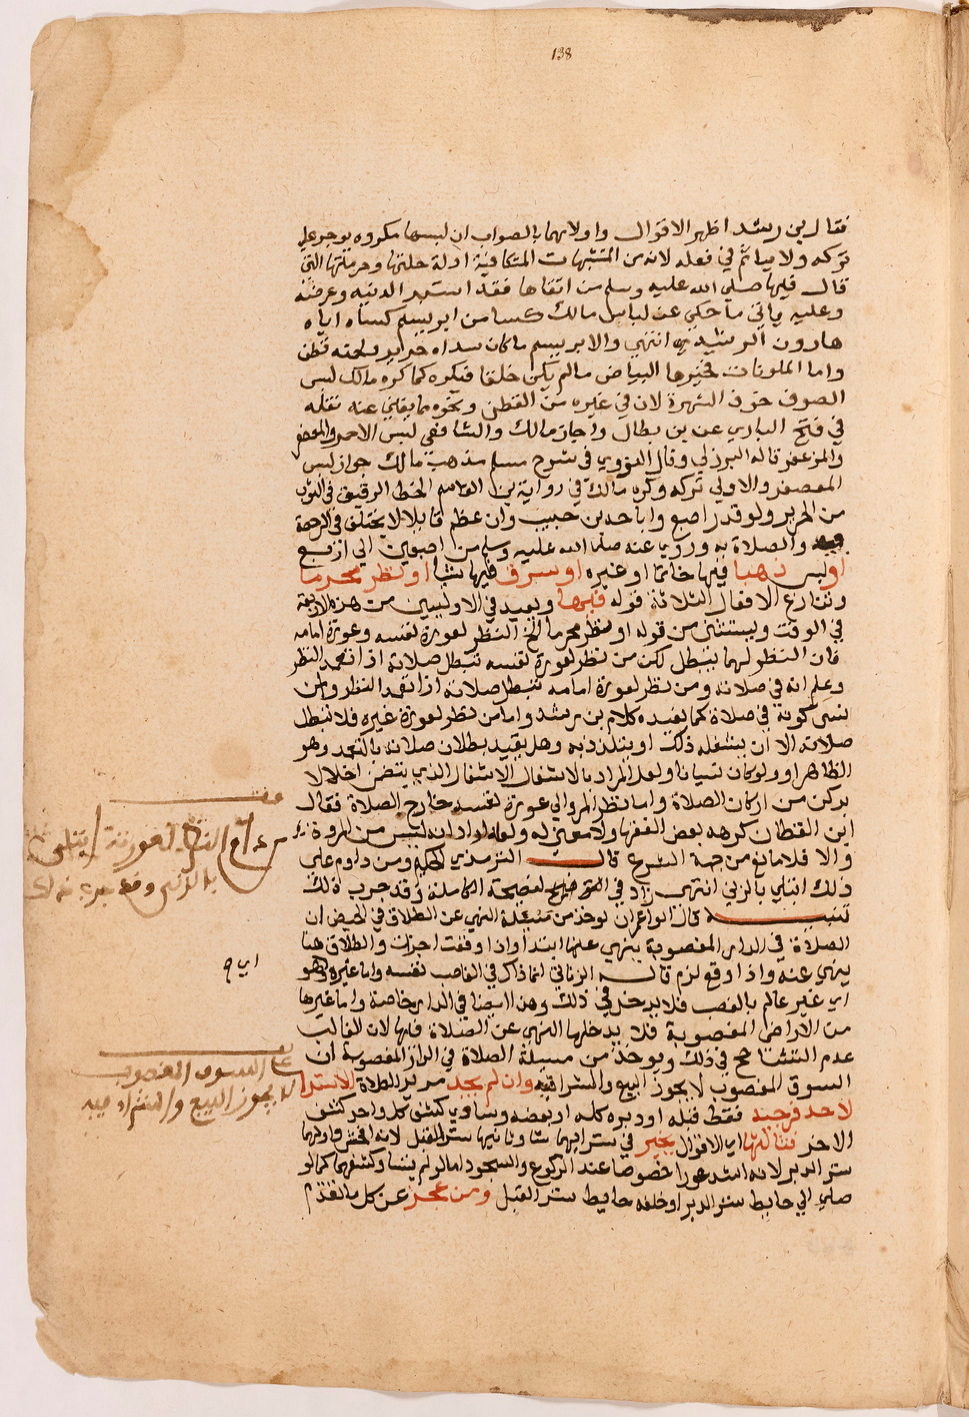 138
فقال بن رشد اظهر الاقوال واولاهما بالصواب ان لبسها مكروه يوجر علي
تركه ولا ياثم في فعله لانه من المشبهات المتكافية ادلة حليتها وحرمتها التي
قال فيها صلي الله عليه وسلم من اتقاها فقد استبرا لدينه وعرضه
وعليه ياتي ما حكي عن لباس مالك كسا من ابريسم كساه اياه
هارون الرشيد انتهي والابريسم ما كان سداه حرير ولحمته قطن
واما الملونات فخيرها البياض ما لم يكن خلقا فيكره كما كره مالك لبس
الصوف خوف الشهرة لان في غيره من القطن ونحوه ما يغني عنه نقله
في فتح الباري عن بن بطال واجاز مالك والشافعي لبس الاحمر والمعصفر
والمزعفر قاله البرزلي وقال النووي في شرح مسلم مذهب مالك جواز لبس
المعصفر والاولي تركه وكره مالك في رواية بن القاسم الخط الرقيق في الثوب
من الحرير ولو قدر اصبع واباحه بن حبيب وان عظم قايلا لا يختلف في الرخصة
فيه والصلاة به وروي عنه صلي الله عليه وسلم من اصبعين الي اربع
او لبس ذهبا فيها خاتما او غيره او سرق فيها شيا او نظر محرما
وتنازع الافعال الثلاثة قوله فيها ويعيد في الاوليين من هذه الاربعة
في الوقت ويستثني من قوله او نظر محرما الخ النظر لعورة نفسه وعورة امامه
فان النظر لهما يبطل لكن من نظر لعورة نفسه تبطل صلاته اذا تعمد النظر
وعلم انه في صلاته ومن نظر لعورة امامه تبطل صلاته اذا تعمد النظر وان
نسي كونه في صلاة كما يفيده كلام بن رشد واما من نظر لعورة غيره فلا تبطل
صلاته الا ان يشغله ذلك او يتلذذ به وهل يقيد بطلان صلاته بالتعمد وهو
الظاهر او ولو كان نسيانا ولعل المراد بالاشغال الاشغال الذي يتضمن اخلالا
بركن من اركان الصلاة واما نظر المرء الي عورة نفسه خارج الصلاة فقال
ابن القطان كرهه بعض الفقها ولا معني له ولعله اراد انه ليس من المروة
والا فلا مانع من جهة الشرع قال الترمذي الحكيم ومن داوم علي
ذلك ابتلي بالزني انتهي زاد في النصيحة الكاملة وقد جرب ذلك
تنبيه قال الوانوغي يوخذ من مسيلة النهي عن الطلاق في الحيض ان
الصلاة في الدار المغصوبة ينهي عنها ابتدا واذا وقعت اجزت والطلاق هنا
ينهي عنه واذا وقع لزم قال الزناتي انما ذكر في الغاصب نفسه واما غيره وهو
اي غير عالم بالغصب فلا يدخل في ذلك وهذا ايضا في الدار خاصة واما غيرها
من الاراضي المغصوبة فلا يدخلها النهي عن الصلاة فيها لان الغالب
عدم التشاحح في ذلك ويوخذ من مسيلة الصلاة في الدار المغصوبة ان
السوق المغصوب لا يجوز البيع والشرا فيه وان لم يجد مريد الصلاة الا سترا
لاحد فرجيه فقط قبله او دبره كله او بعضه وساوي كشف كل واحد كشف
الاخر فثالثها اي الاقوال يخير في ستر ايهما شا وثانيها ستر القبل لانه افحش واولها
ستر الدبر لانه اشد عورا خصوصا عند الركوع والسجود اما لو لم يتساو كشفهما كما لو
صلي الي حايط ستر الدبر او خلفه حايط ستر القبل ومن عجز عن كل ما تقدم
النظر لعورته ابتلي
بالزني وقد جرب ذلك
اي
السوق المغصوب
لا يجوز البيع والشراء فيه